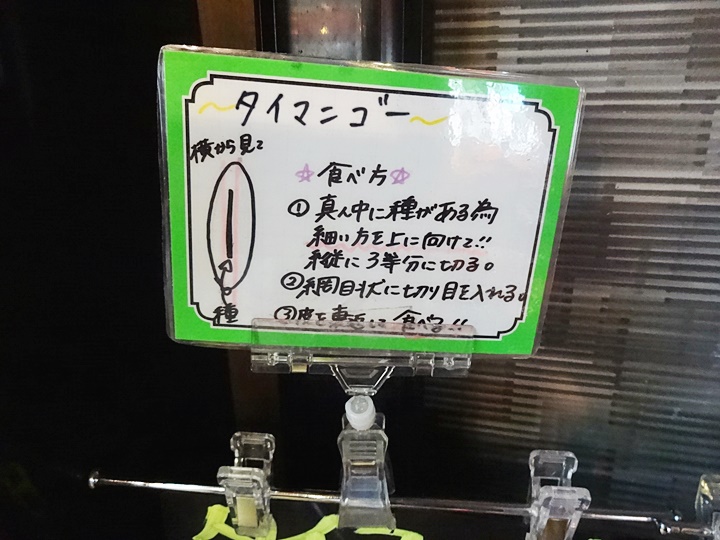 ～タイマンゴー～
横から見て
種
☆食べ方☆
① 真ん中に種がある為
細い方を上に向けて!!
縦に3等分に切る。
②網目状に切り目を入れる。
③皮を 食べる!!